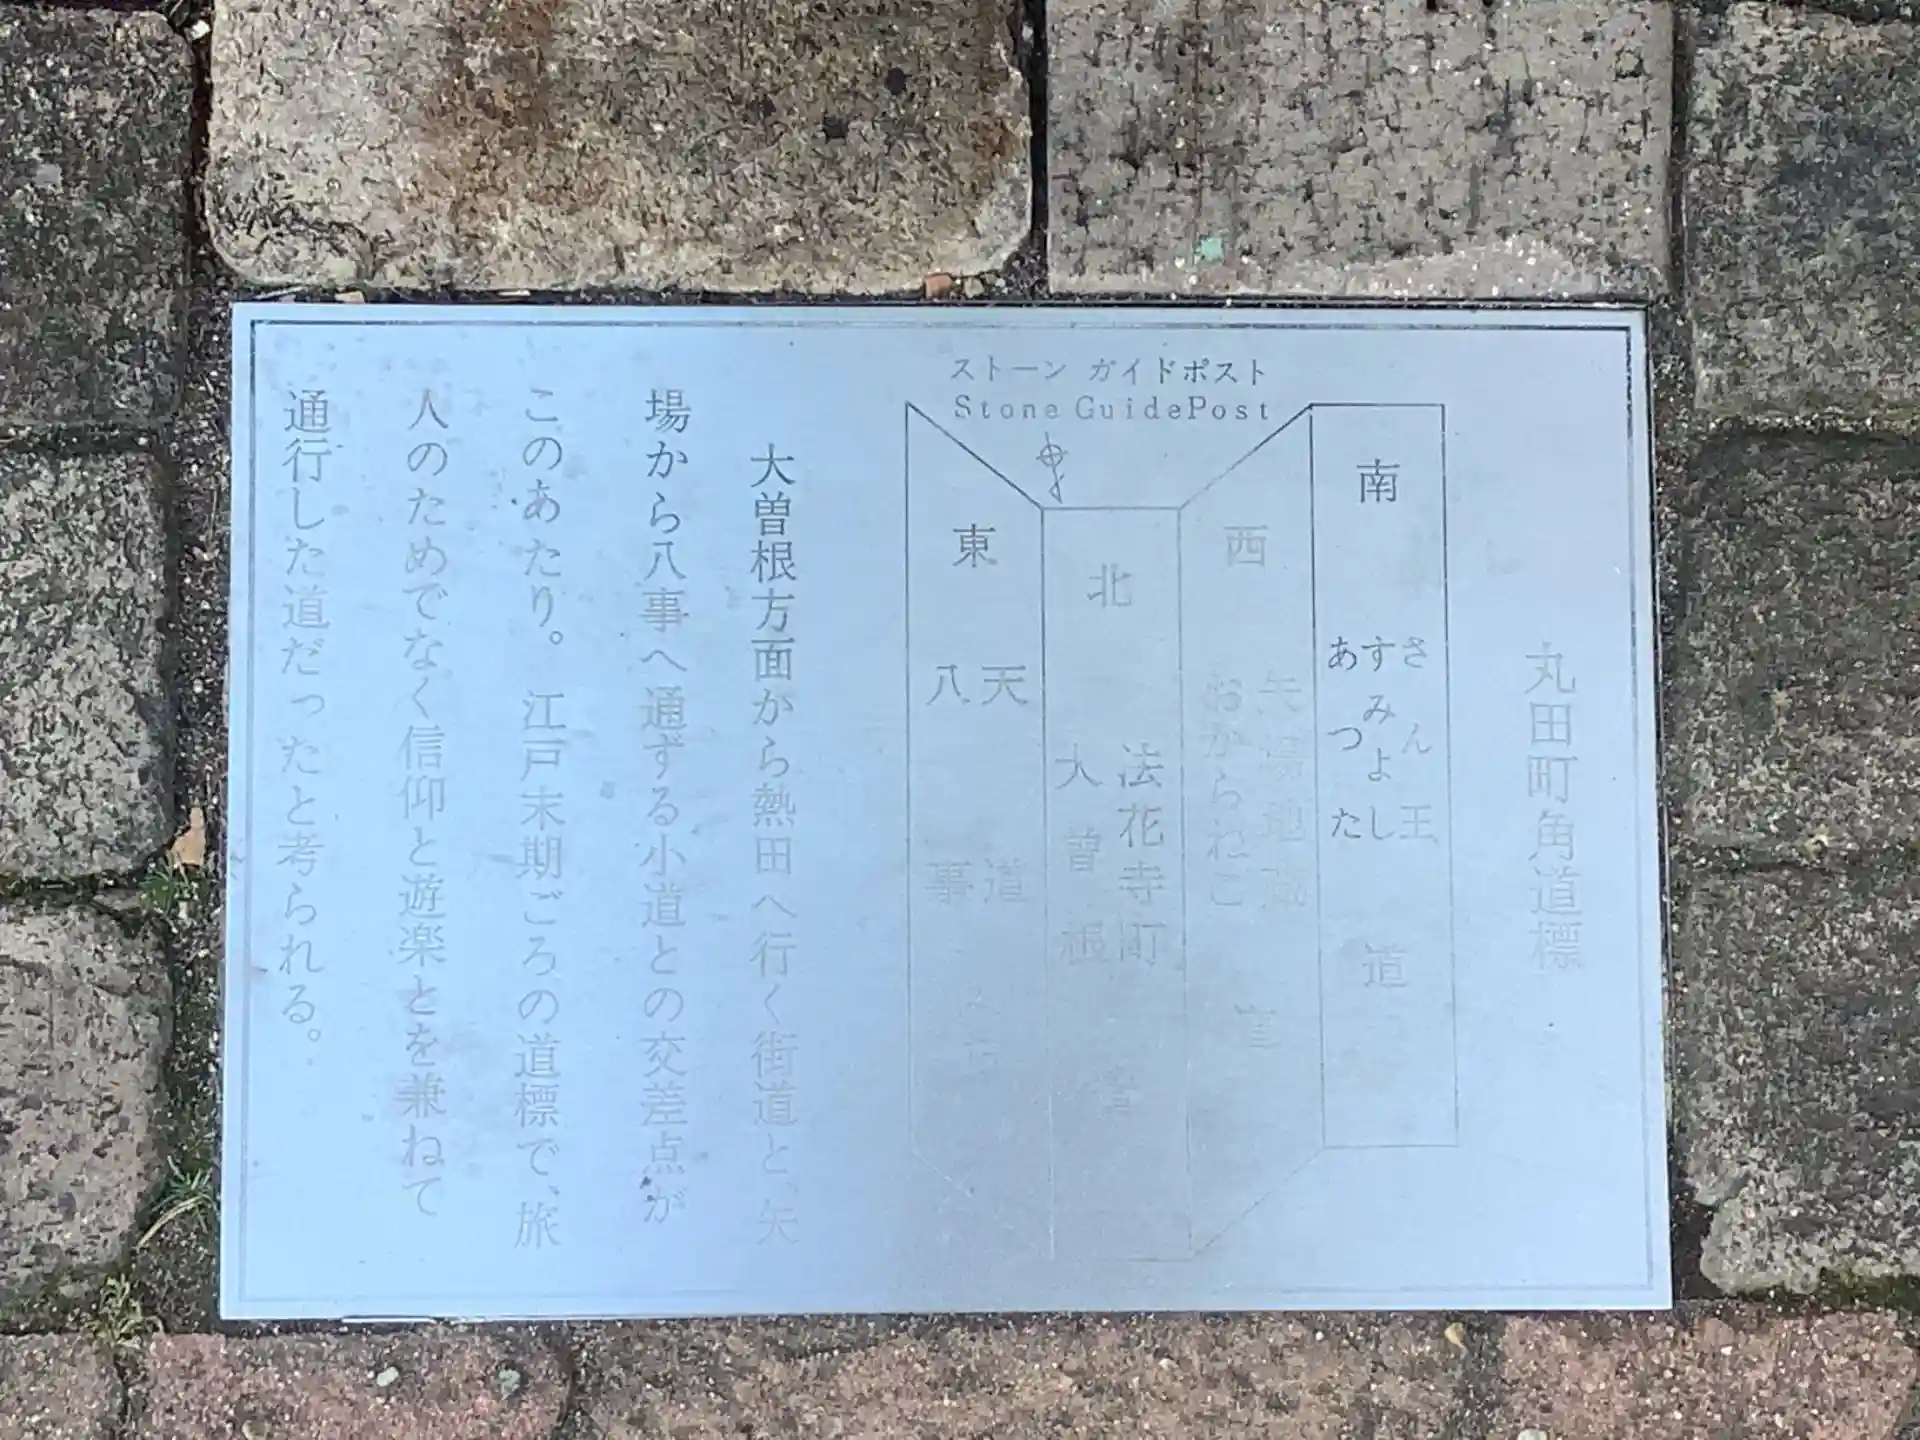 丸田町角道標
ストーン ガイドポスト
Stone GuidePost
南
さん王
すみよし
あつた
道
西
矢場地蔵
おからねこ
北
法花寺町
大曽根
東
天道
八事
大曽根方面から熱田へ行く街道と、矢
場から八事へ通ずる小道との交差点が
このあたり。江戸末期ごろの道標で、旅
人のためでなく信仰と遊楽とを兼ねて
通行した道だったと考られる。